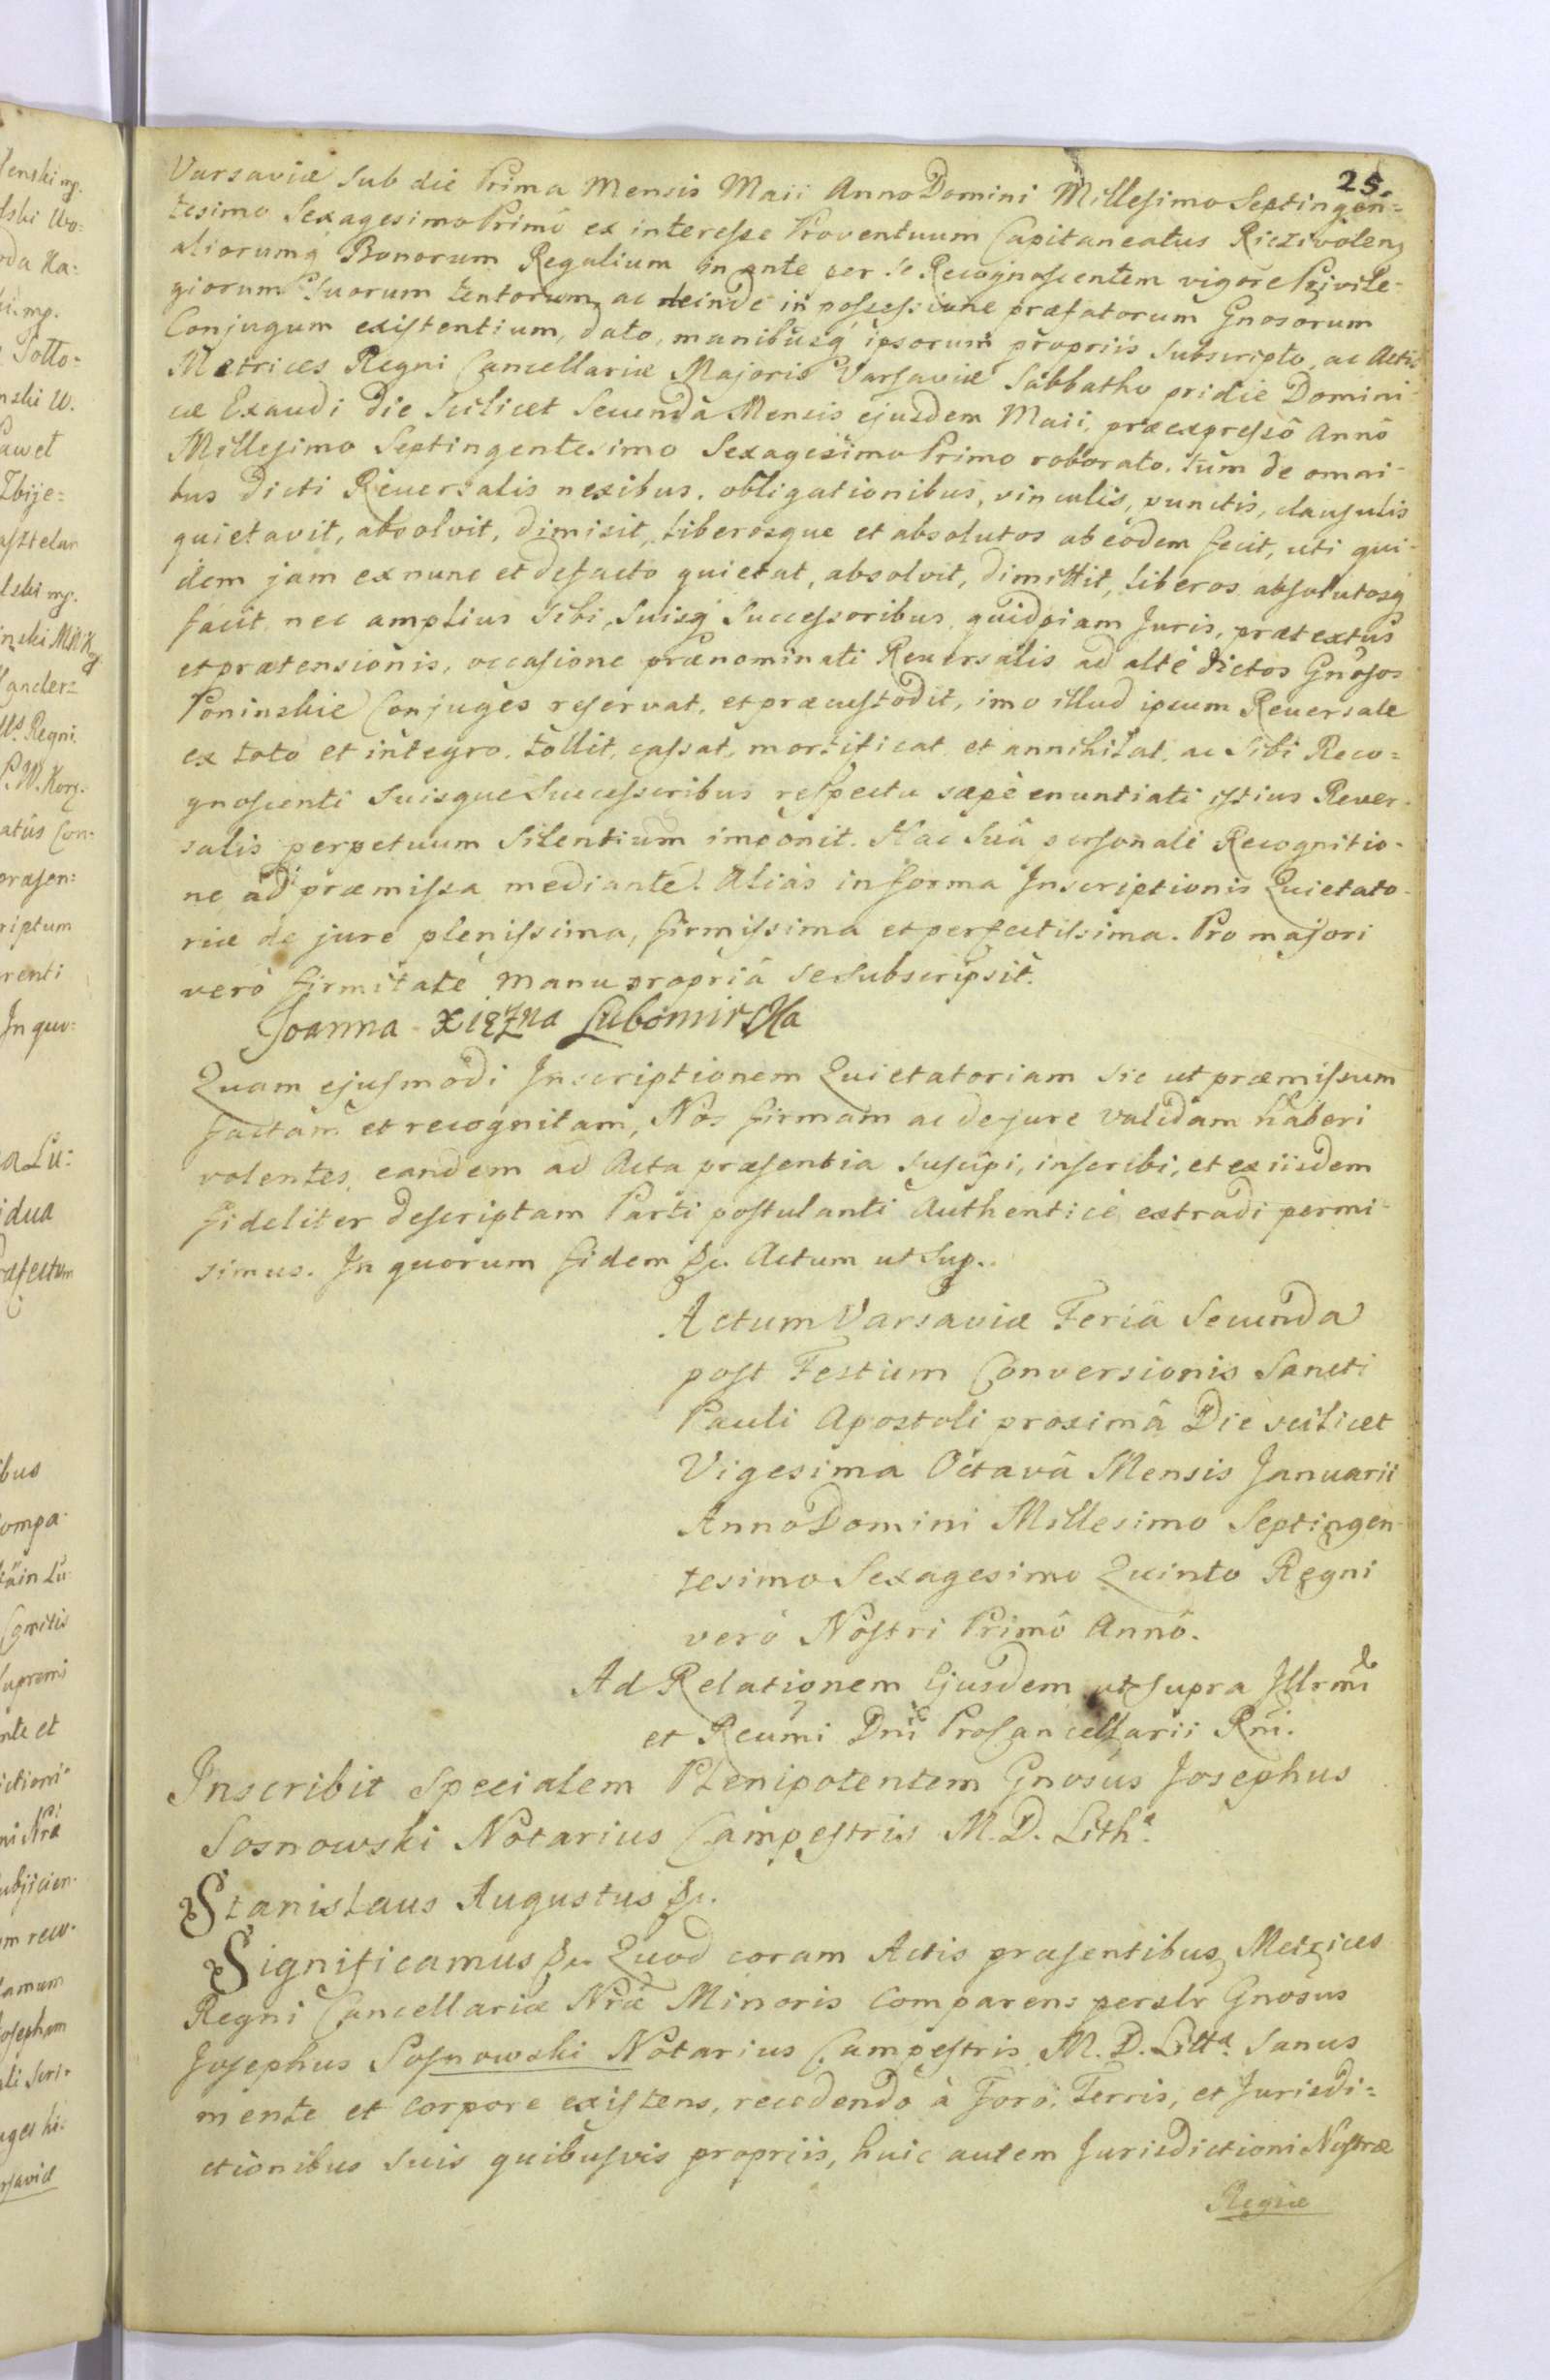 25.
Varsaviæ sub die Prima Mensis Maii Anno Domini Millesimo Septingen=
tesimo Sexagesimo Primô ex interesse Proventuum Capitaneatus Riczivolen,
aliorumq̃ Bonorum Regalium in ante per se Recognoscentem vigore Privile=
giorum Suorum tentorum, ac deinde in possessione præfatorum Gnosorum
Conjugum existentium, dato, manibusq̃ ipsorum propriis subscripto, ac Actis
Metrices Regni Cancellariæ Majoris Varsaviæ Sabbatho pridie Domini=
cæ Exaudi die scilicet Secunda Mensis ejusdem Maii, præexpressô Annô
Millesimo Septingentesimo Sexagesimo Primo roborato. tùm de omni=
bus dicti Reversalis nexibus, obligationibus, vinculis, punctis, clausulis
quietavit, absolvit, dimisit, liberosque et absolutos ab eôdem fecit, uti qui=
dem jam ex nunc et defacto quietat, absolvit, dimittit, liberos absolutosq̃
facit, nec amplius sibi, suisq̃ Successoribus, quidpiam Juris, prætextus
et prætensionis, occasione prænominati Reversalis ad altè dictos Gnosos
Poninskie Conjuges reservat, et præcustodit, imo illud ipsum Reversale
ex toto et integro, tollit, cassat, mortificat et annihilat, ac Sibi Reco=
gnoscenti Suisque Successoribus respectu sæpè enuntiati istius Rever=
salis perpetuum Silentium imponit. Hac Suâ personali Recognitio=
ne ad præmissa mediante. Aliàs in forma Inscriptionis Quietato=
riæ de jure plenissima, firmissima et perfectissima. Pro majori
verò firmitate manu propriâ se subscripsit.
Joanna Xiężna Lubomirska
Quam ejusmodi Inscriptionem Quietatoriam sic ut præmissum
factam et recognitam, Nos firmam ac de jure validam haberi
volentes, eandem ad Acta præsentia suscipi, inscribi, et ex iisdem
fideliter descriptam Parti postulanti Authenticè extradi permi=
simus. In quorum fidem &c. Actum ut Sup.
Actum Varsaviæ Feriâ Secunda
post Festum Conversionis Sancti
Pauli Apostoli proximâ Die scilicet
Vigesima Octavâ Mensis Januarii
Anno Domini Millesimo Septingen=
tesimo Sexagesimo Quinto Regni
verò Nostri Primô Annô.
Ad Relationem Ejusdem ut supra Illrmi
et Reumi Dni ProCancellarii Rni.
Inscribit Specialem Plenipotentem Gnosus Josephus
Sosnowski Notarius Campestris M. D. Lithæ.
Stanislaus Augustus &c.
Significamus &c. Quod coram Actis præsentibus Metrices
Regni Cancellariæ Nræ Minoris Comparens perslr Gnosus
Josephus Sosnowski Notarius Campestris M. D. Littæ. Sanus
mente et corpore existens, recedendo à Foro, Terris, et Jurisdi=
ctionibus suis quibusvis propriis, huic autem Jurisdictioni Nostræ
Regiæ